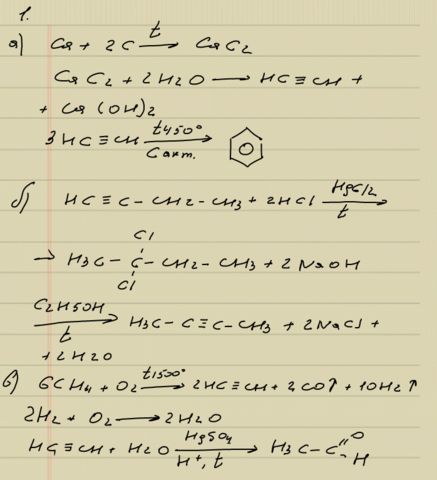 1.
а) Ca + 2C t→ CaC2
CaC2 + 2H2O → HC≡CH +
+ Ca(OH)2
3HC≡CH t450° C акт.→
б) HC≡C-CH2-CH3 + 2HCl HgCl2 t→
→ H3C-C(Cl)(Cl)-CH2-CH3 + 2NaOH
C2H5OH t→ H3C-C≡C-CH3 + 2NaCl +
+ 2H2O
в) 6CH4 + O2 t1500°→ 2HC≡CH + 2CO↑ + 10H2↑
2H2 + O2 → 2H2O
HC≡CH + H2O HgSO4 H+, t→ H3C-C=O H